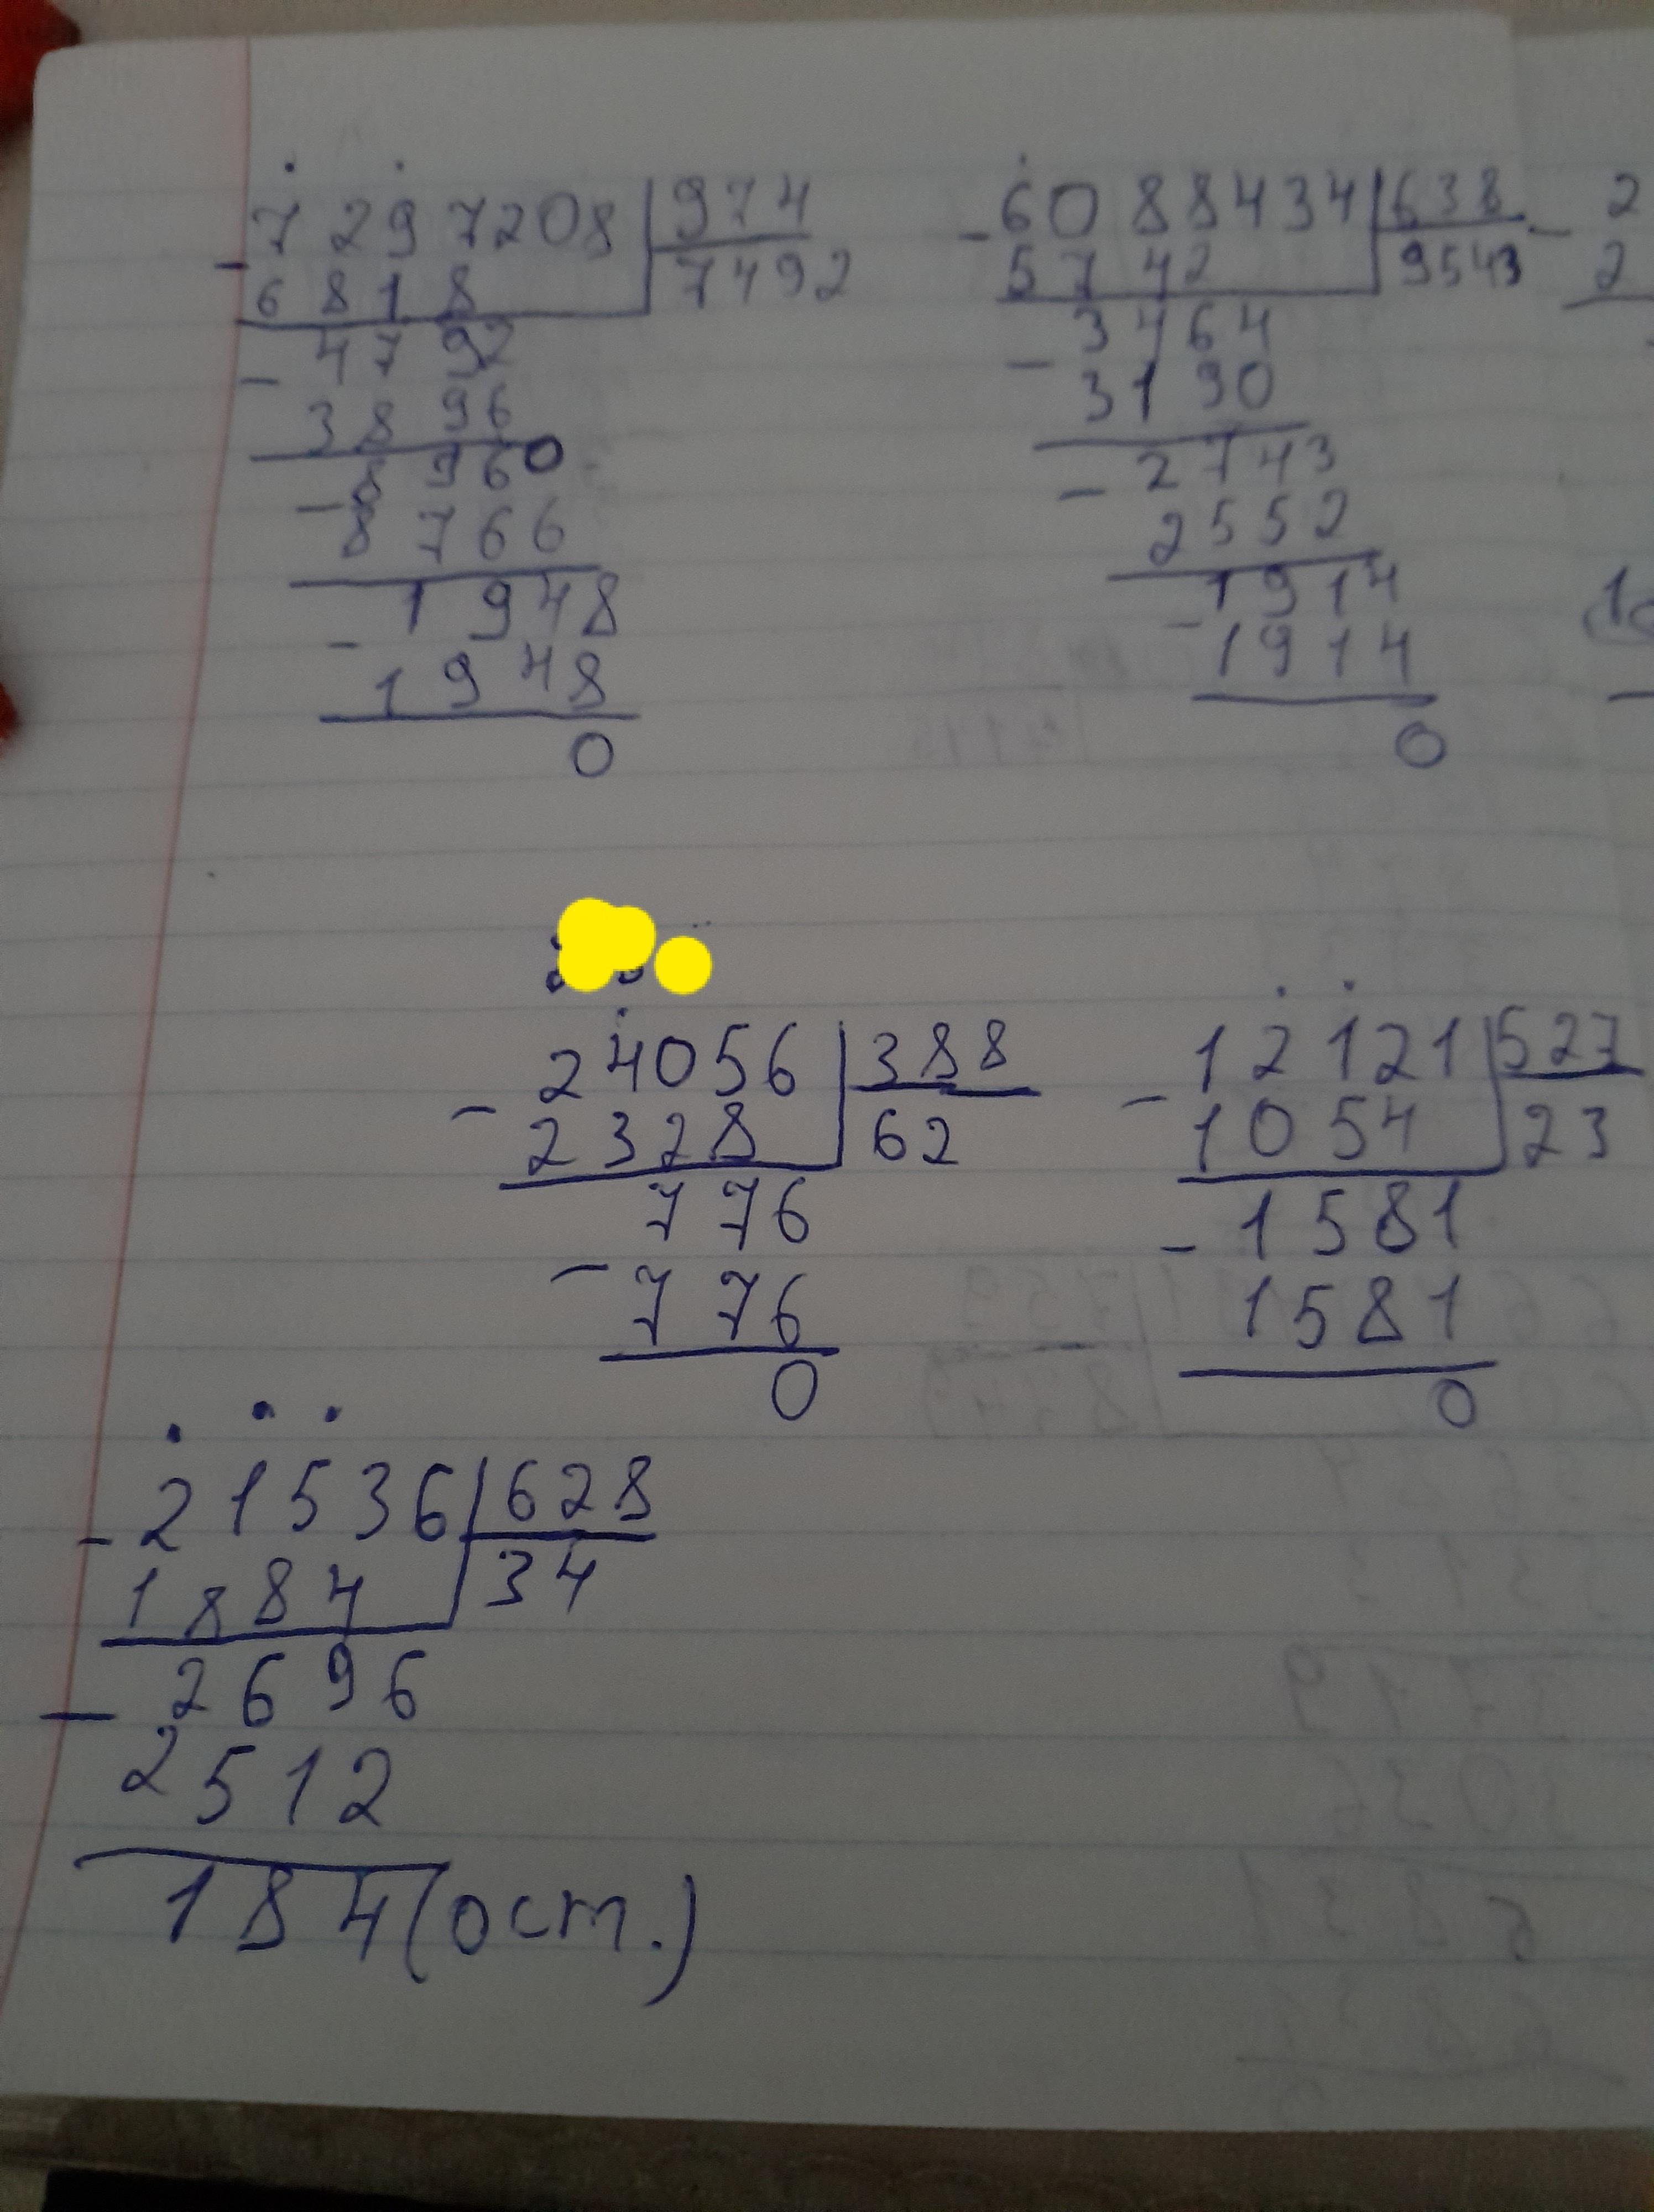 7297208 974
- 6818 7492
4792
- 3896
8960
- 8766
1948
- 1948
0
- 6088434 638
5742 9543
3464
- 3190
2743
- 2552
1914
- 1914
0
- 2
2
24056 388
- 2328 62
776
- 776
0
12121 527
- 1054 23
1581
- 1581
0
- 21536 628
1884 34
2696
- 2512
184 (ост.)